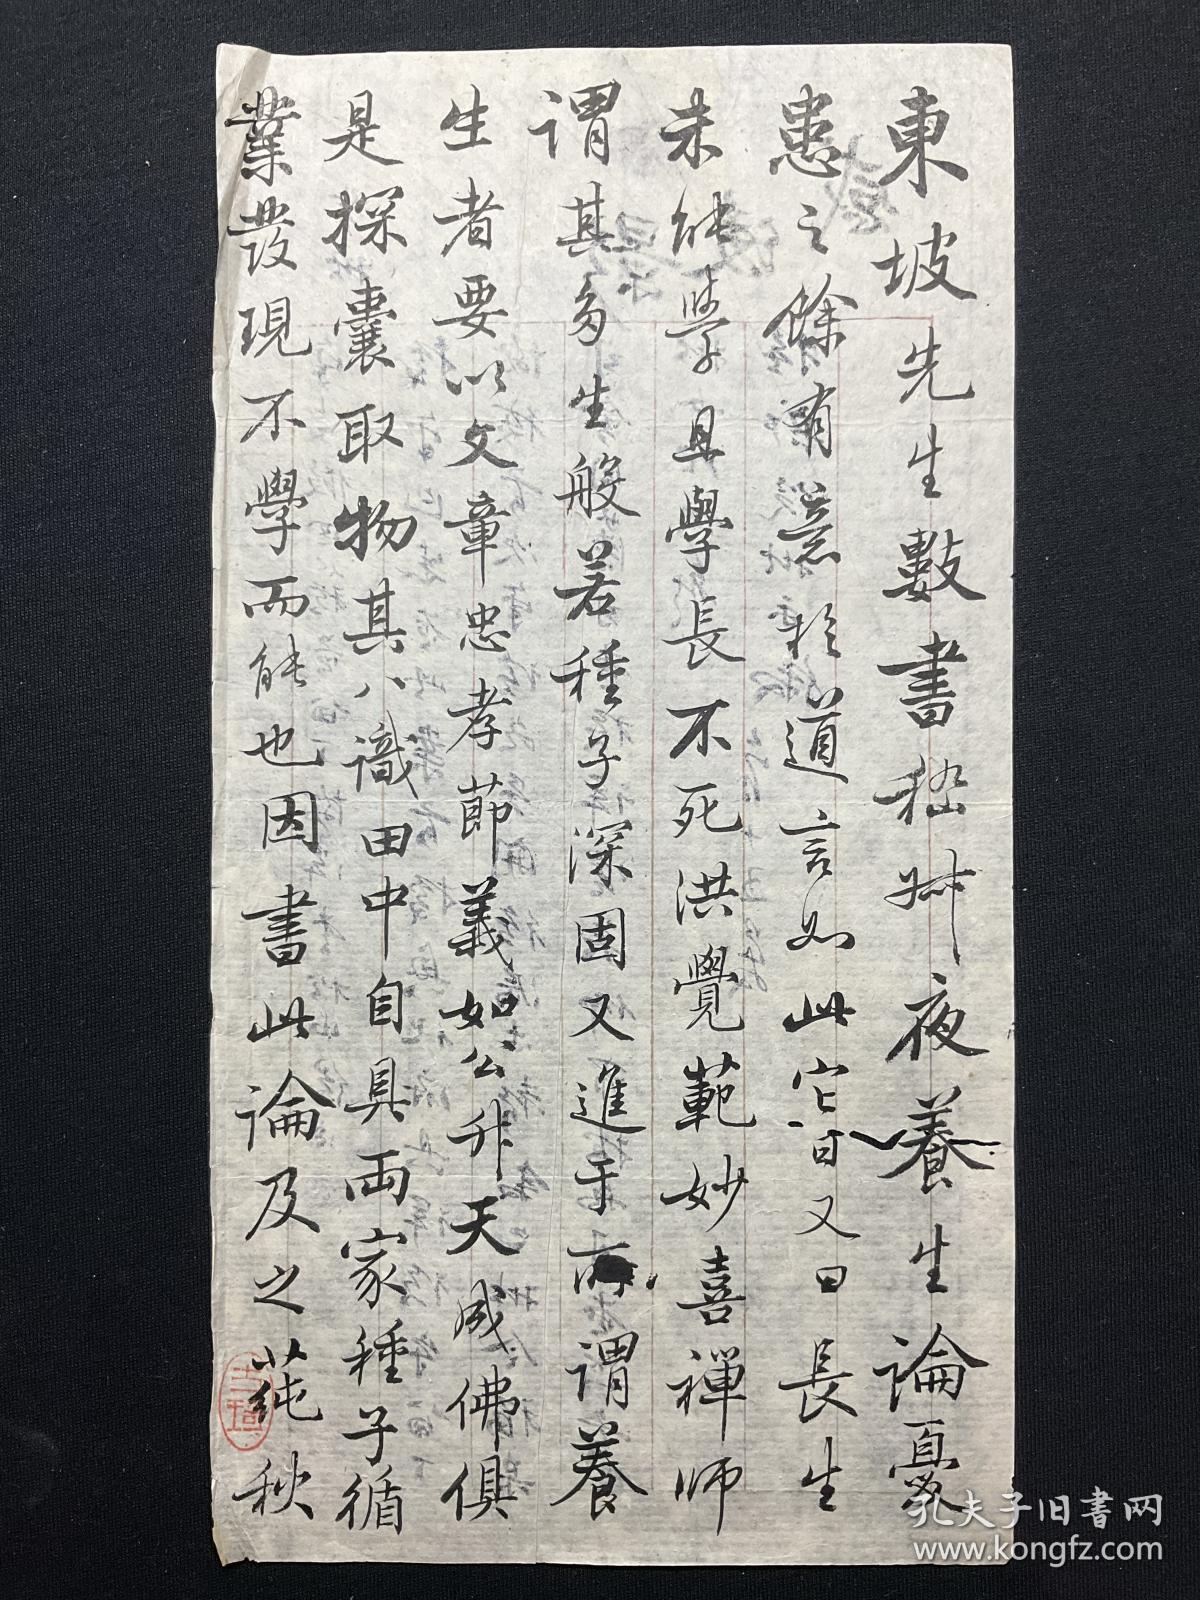 東坡先生數書嵇叔夜養生論憂
患之餘有意於道言如此它日又曰長生
未能學且學長不死洪覺範妙喜禪師
謂其多生般若種子深固又進于所謂養
生者要以文章忠孝節義如公升天成佛俱
是探囊取物其八識田中自具兩家種子循
業發現不學而能也因書此論及之蓴秋
孔夫子旧书网
www.kongfz.com